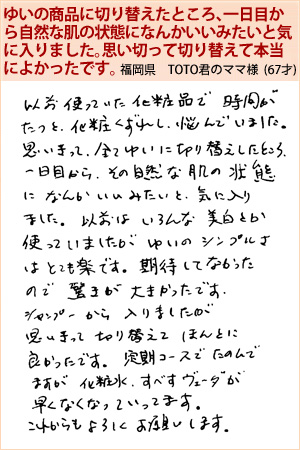 ゆいの商品に切り替えたところ、一日目か
ら自然な肌の状態になんかいいみたいと気
に入りました。思い切って切り替えて本当
によかったです。福岡県　TOTO君のママ様（67才）
以前使っていた化粧品で時間が
たつと、化粧くずれし、悩んでいました。
思いきって、全てゆいに切り替えしたところ、
一日目から、その自然な肌の状態
になんかいいみたいと、気に入り
ました。以前は いろんな美白とか
使っていましたが ゆいのシンプルさ
はとても楽です。期待してなかった
ので 驚きが大きかったです。
シャンプーから入りましたが
思いきって切り替えて ほんとに
良かったです。定期コースでたのんで
ますが 化粧水、すべすヴェーダが
早くなくなっていってます。
これからもよろしくお願いします。